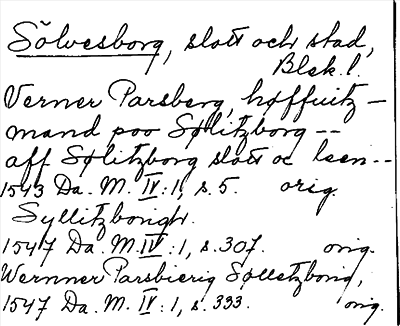 Sölvesborg, slott och stad,
Blek. l.
Verner Parsberg, høffuitz-
mand poo Sølitzborg --
aff Sølitzborg slott oc leen --
1543 Da. M. IV:1, s. 5. orig.
Syllitzborigh.
1547 Da. M. IV:1, s. 307. orig.
Wernner Parsbierig Sølletzborig,
1547 Da. M. IV:1, s. 333. orig.